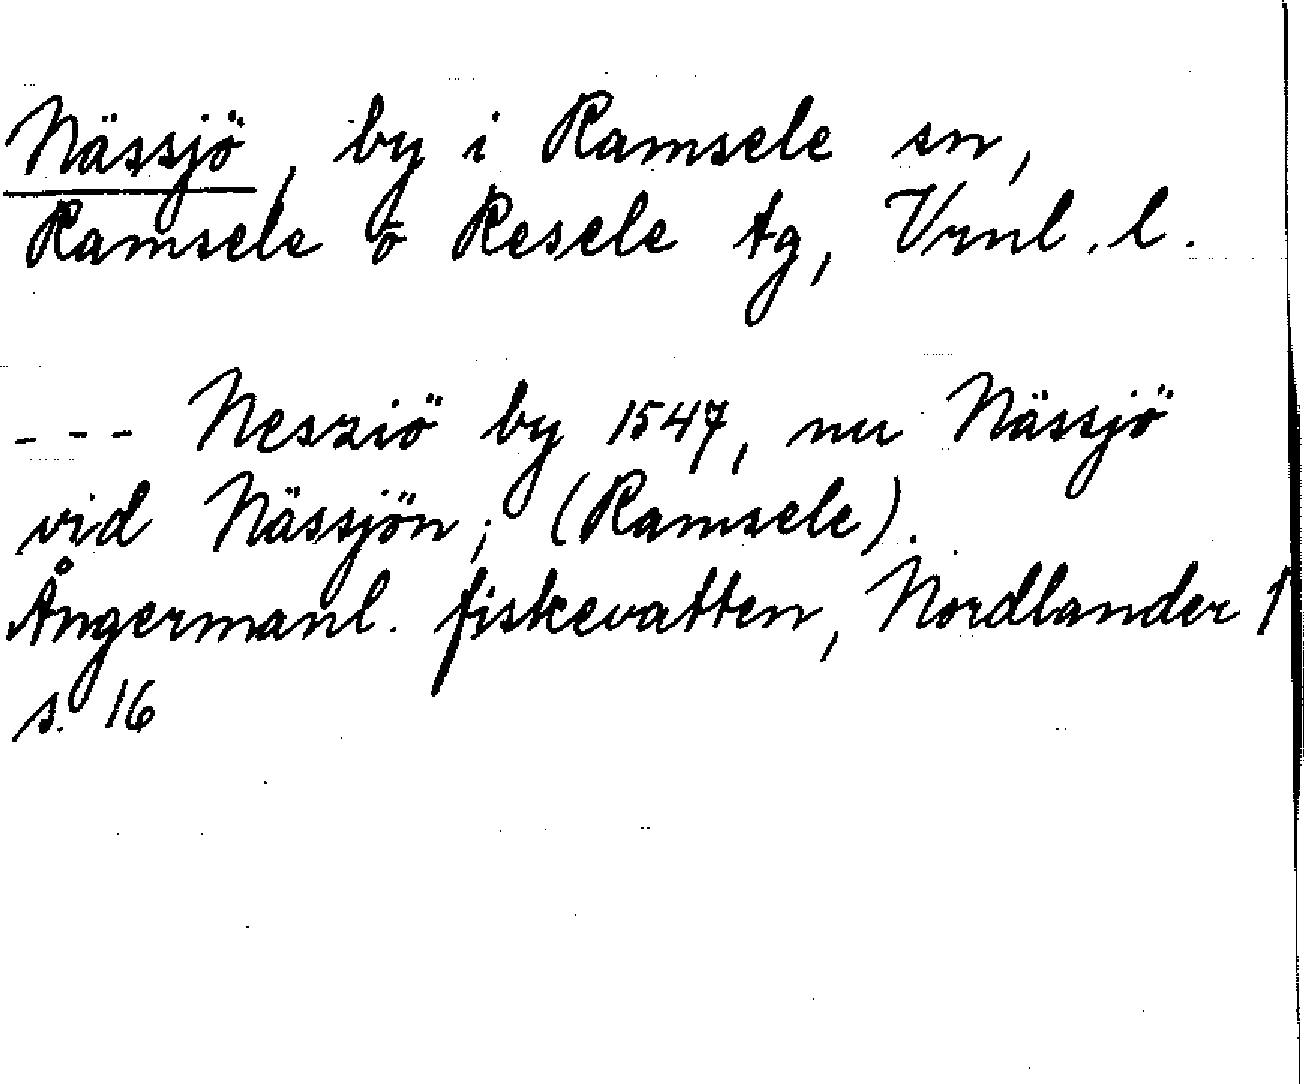 Nässjö, by i Ramsele sn,
Ramsele o Resele tg, Vrnl. l.
--- Nesziö by 1547, nu Nässjö
vid Nässjön; (Ramsele).
Ångermanl. fiskevatten, Nordlander 1
s. 16